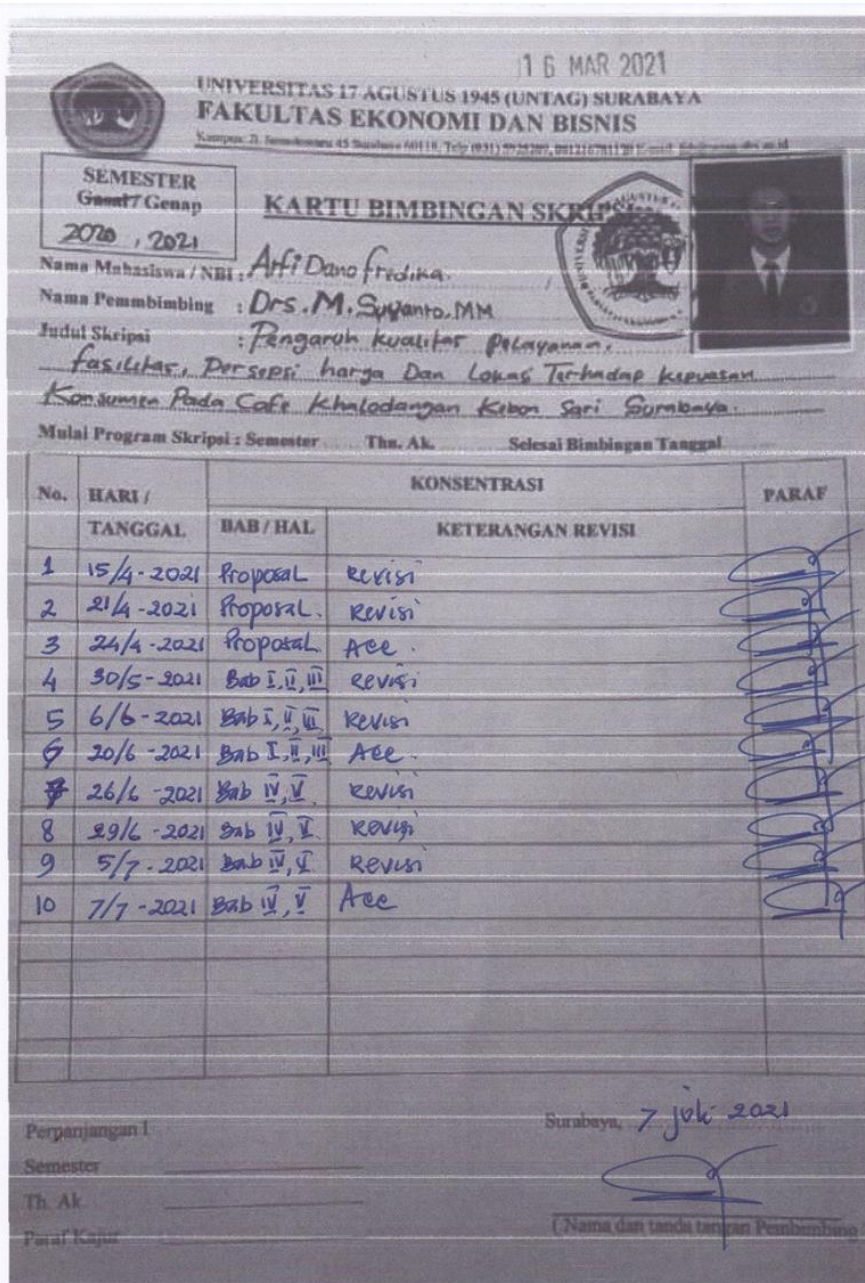 16 MAR 2021
UNIVERSITAS 17 AGUSTUS 1945 (UNTAG) SURABAYA
FAKULTAS EKONOMI DAN BISNIS
Kampus: Jl. Semolowaru 45 Surabaya 60118, Telp (031)
SEMESTER
Gasal / Genap
2020 , 2021
KARTU BIMBINGAN SKRIPSI
Nama Mahasiswa / NBI : Arfi Dano fredika. /
Nama Pemmbimbing : Drs. M. Suyanto. MM
Judul Skripsi : Pengaruh kualitas pelayanan,
fasilitas, Persepsi harga Dan Lokasi Terhadap kepuasan
Konsumen Pada Cafe Khalodangan Kebon Sari Surabaya.
Mulai Program Skripsi : Semester ........ Thn. Ak. ........ Selesai Bimbingan Tanggal ........
No. HARI / TANGGAL KONSENTRASI PARAF
BAB / HAL KETERANGAN REVISI
1 15/4 - 2021 Proposal Revisi
2 21/4 - 2021 Proposal. Revisi
3 24/4 - 2021 Proposal. Acc.
4 30/5 - 2021 Bab I, II, III Revisi
5 6/6 - 2021 Bab I, II, III Revisi
6 20/6 - 2021 Bab I, II, III Acc.
7 26/6 - 2021 Bab IV, V Revisi
8 29/6 - 2021 Bab IV, V Revisi
9 5/7 - 2021 Bab IV, V Revisi
10 7/7 - 2021 Bab IV, V Acc
Surabaya, 7 juli 2021
Perpanjangan I
Semester
Th. Ak.
Paraf Kajur
( Nama dan tanda tangan Pembimbing